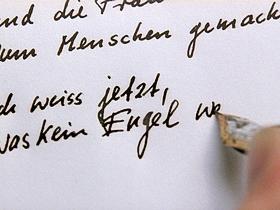 und die Frau
zum Menschen gemach
ch weiss jetzt,
was kein Engel we